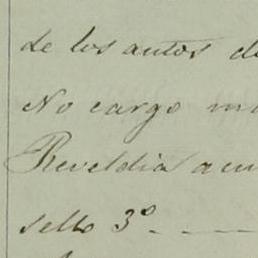 de los autos de
No cargo
Reveldia acu
sello 3º